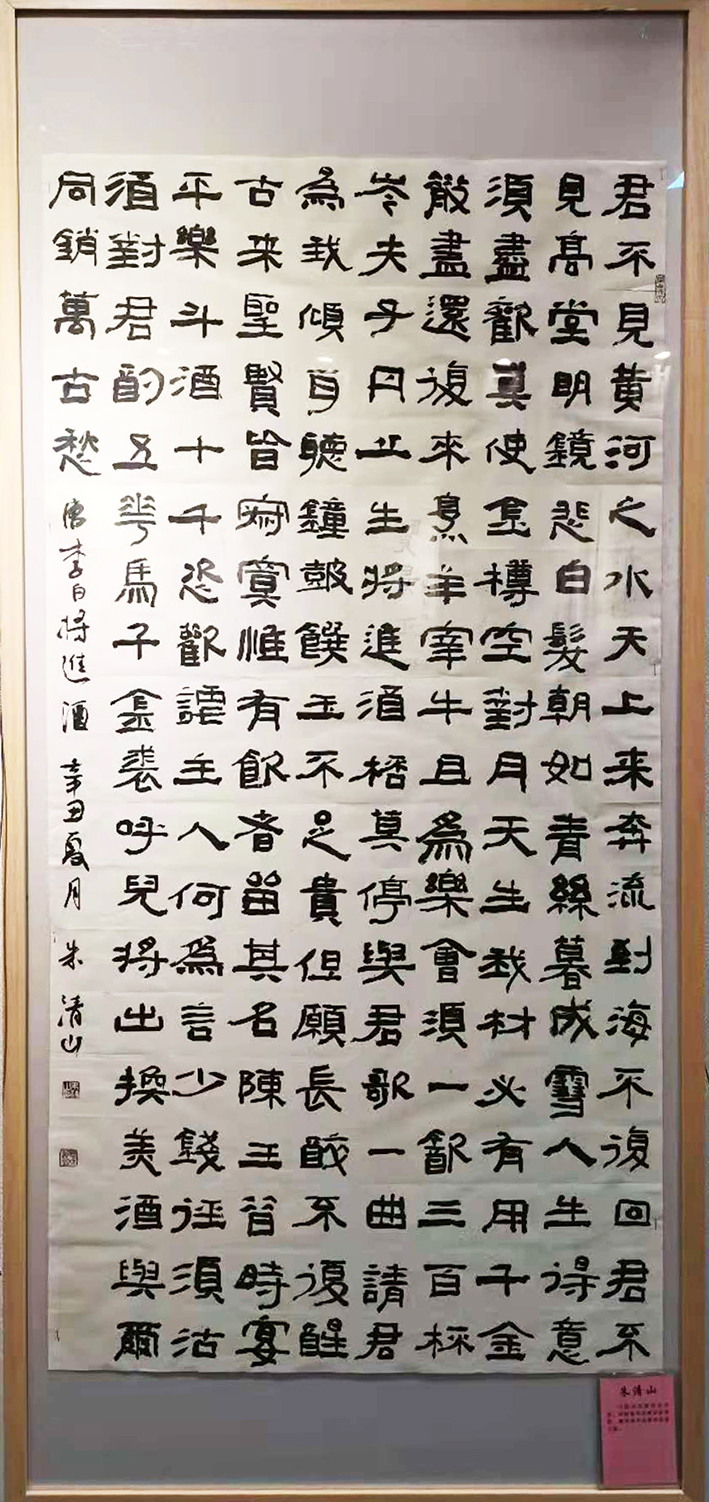 君不見黄河之水天上来奔流到海不復回君不
見高堂明鏡悲白髮朝如青絲暮成雪人生得意
須盡歡莫使金樽空對月天生我材必有用千金
散盡還復來烹羊宰牛且為樂會須一飲三百杯
岑夫子丹丘生将進酒桮莫停與君歌一曲請君
為我傾耳聽鐘鼓饌玉不足貴但願長醉不復醒
古来聖賢皆寂寞惟有飲者留其名陳王昔時宴
平樂斗酒十千恣歡謔主人何為言少錢徑須沽
須對君酌五花馬千金裘呼兒将出換美酒與爾
同銷萬古愁 唐李白将進酒 辛丑夏月 朱清山
朱清山